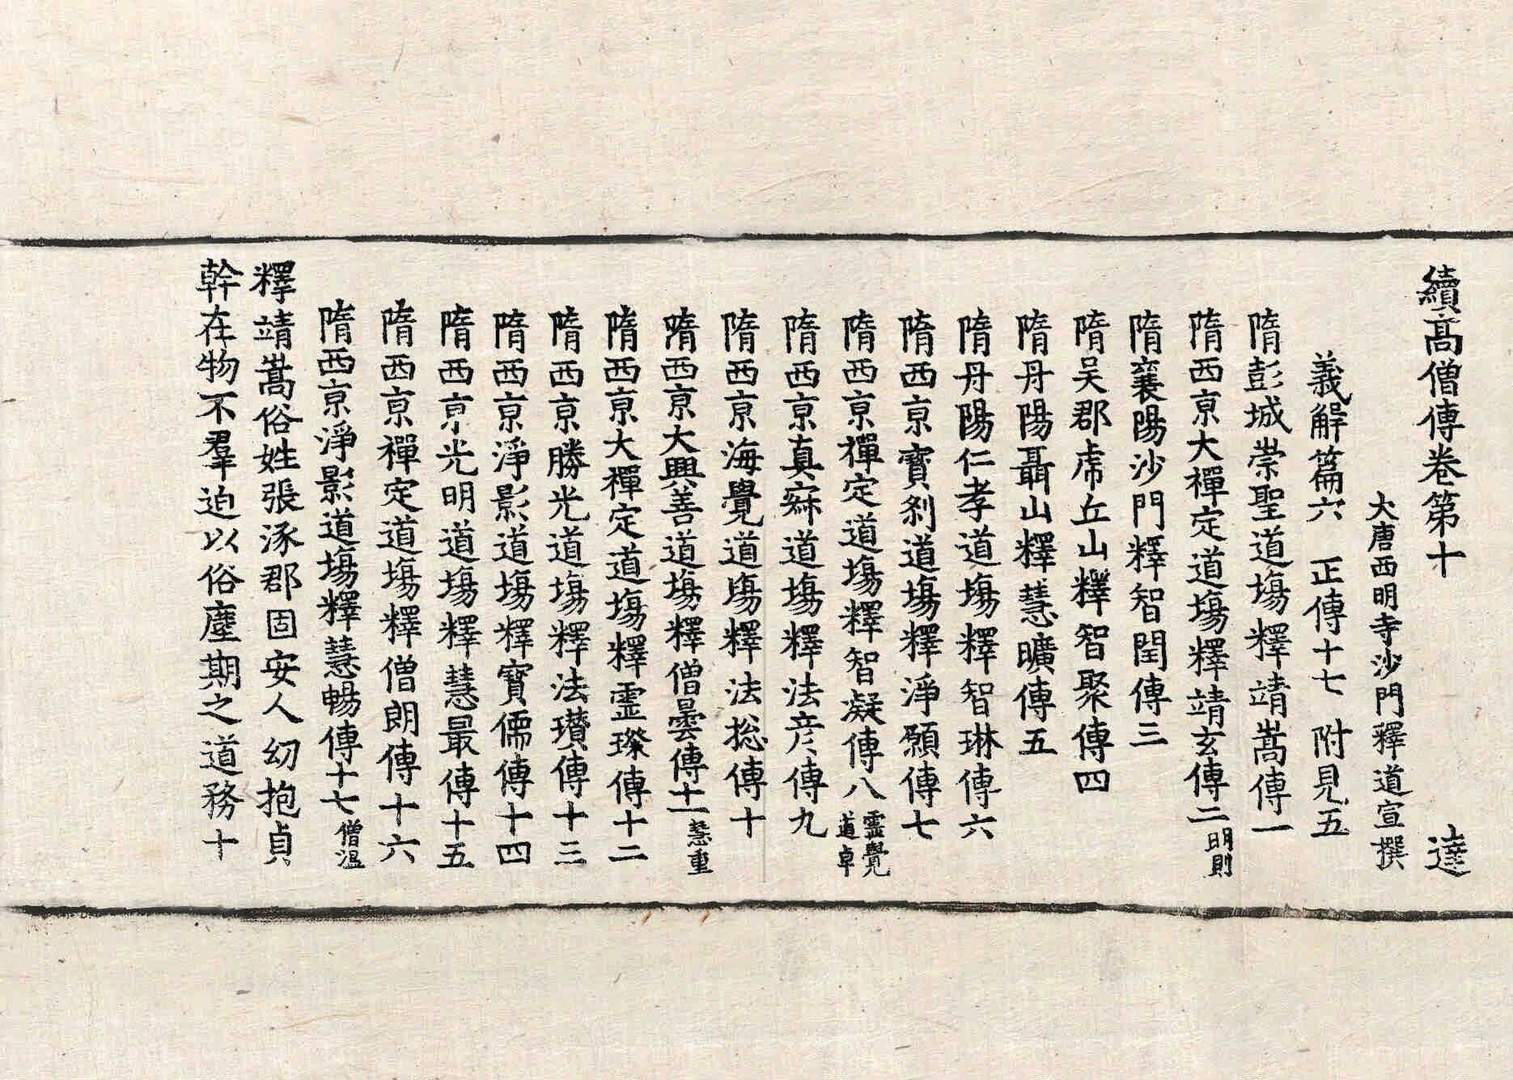 續高僧傳卷第十 達
大唐西明寺沙門釋道宣撰
義解篇六 正傳十七 附見五
隋彭城崇聖道場釋靖嵩傳一
隋西京大禪定道場釋靖玄傳二明則
隋襄陽沙門釋智閏傳三
隋吳郡虎丘山釋智聚傳四
隋丹陽聶山釋慧曠傳五
隋丹陽仁孝道場釋智琳傳六
隋西京寶刹道場釋淨願傳七
隋西京禪定道場釋智凝傳八靈覺道卓
隋西京真寂道場釋法彦傳九
隋西京海覺道場釋法捴傳十
隋西京大興善道場釋僧曇傳十一慧重
隋西京大禪定道場釋靈璨傳十二
隋西京勝光道場釋法瓚傳十三
隋西京淨影道場釋寶儒傳十四
隋西京光明道場釋慧最傳十五
隋西京禪定道場釋僧朗傳十六
隋西京淨影道場釋慧暢傳十七僧温
釋靖嵩俗姓張涿郡固安人幼抱貞
幹在物不羣迫以俗塵期之道務十